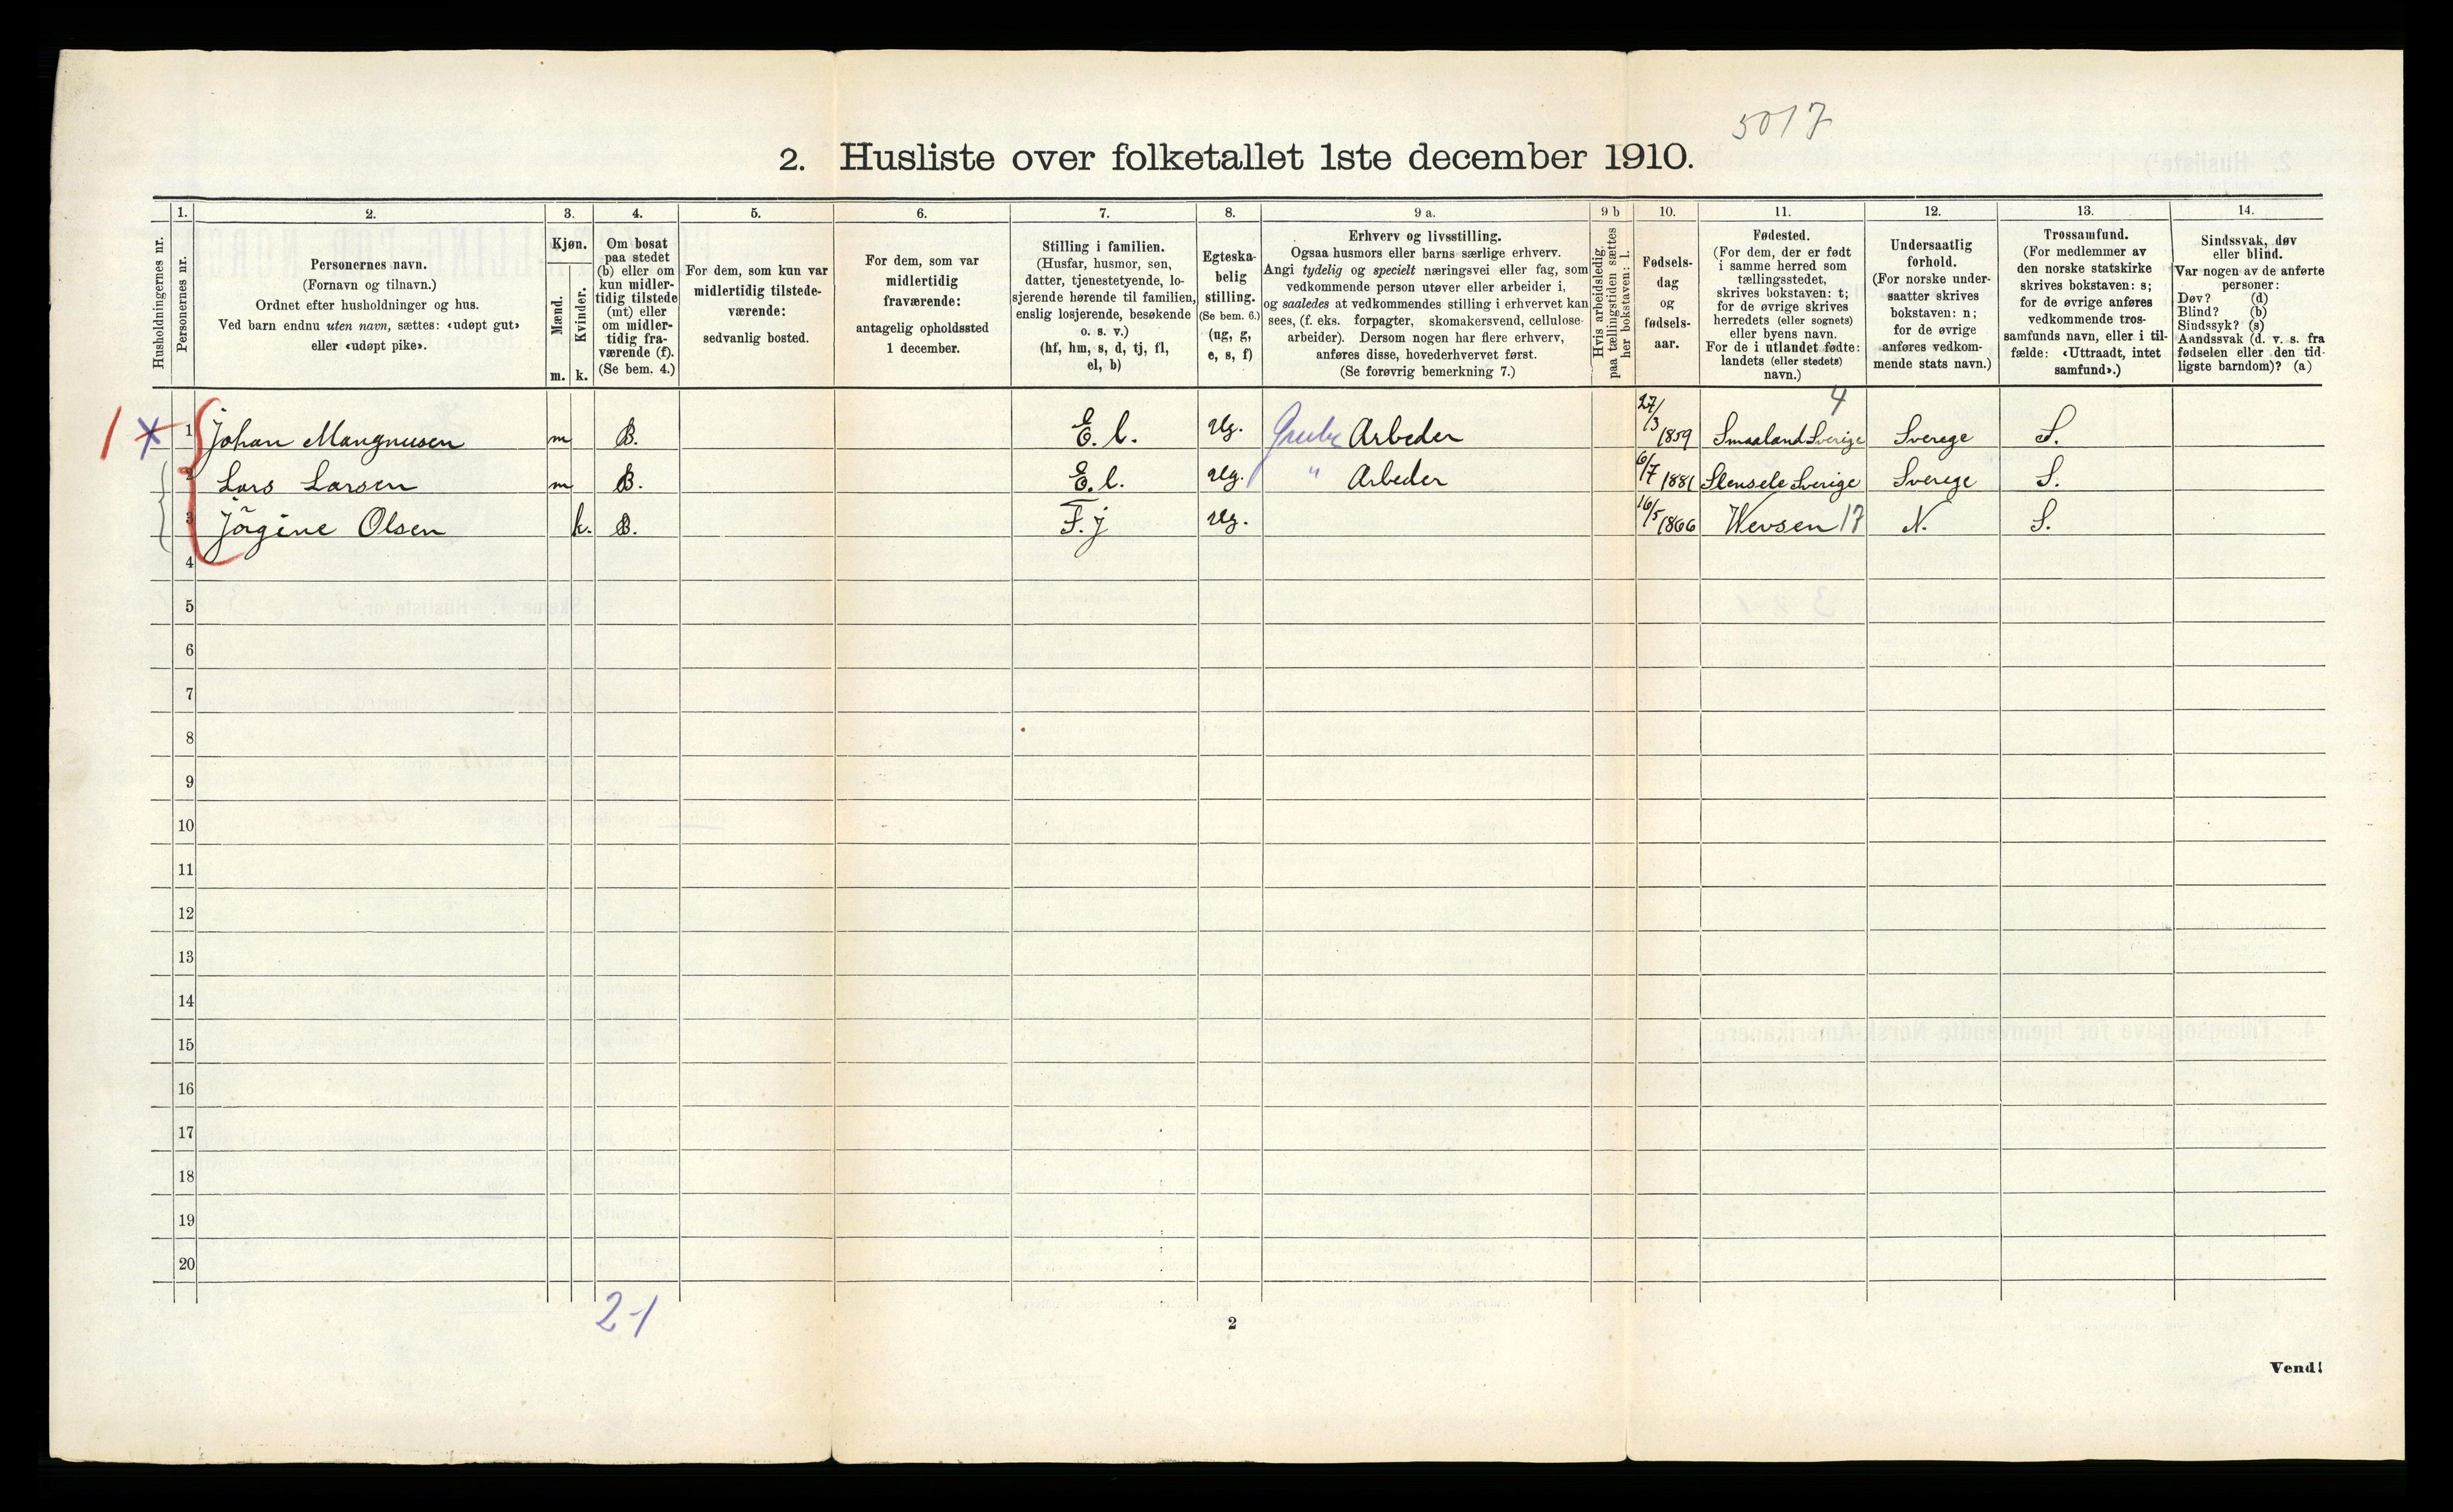 5017
2. Husliste over folketallet 1ste december 1910.
Husholdningernes nr.
1.
Personernes nr.
2.
Personernes navn.
(Fornavn og tilnavn.)
Ordnet efter husholdninger og hus.
Ved barn endnu uten navn, sættes: «udøpt gut»
eller «udøpt pike».
3.
Kjøn.
Mænd.
Kvinder.
m. k.
4.
Om bosat
paa stedet
(b) eller om
kun midler-
tidig tilstede
(mt) eller
om midler-
tidig fra-
værende (f).
(Se bem. 4.)
5.
For dem, som kun var
midlertidig tilstede-
værende:
sedvanlig bosted.
6.
For dem, som var
midlertidig
fraværende:
antagelig opholdssted
1 december.
7.
Stilling i familien.
(Husfar, husmor, søn,
datter, tjenestetyende, lo-
sjerende hørende til familien,
enslig losjerende, besøkende
o. s. v.)
(hf, hm, s, d, tj, fl,
el, b)
8.
Egteska-
belig
stilling.
(Se bem. 6.)
(ug, g,
e, s, f)
9 a.
Erhverv og livsstilling.
Ogsaa husmors eller barns særlige erhverv.
Angi tydelig og specielt næringsvei eller fag, som
vedkommende person utøver eller arbeider i,
og saaledes at vedkommendes stilling i erhvervet kan
sees, (f. eks. forpagter, skomakersvend, cellulose-
arbeider). Dersom nogen har flere erhverv,
anføres disse, hovederhvervet først.
(Se forøvrig bemerkning 7.)
9 b
Hvis arbeidsledig
paa tællingstiden sættes
her bokstaven: l.
10.
Fødsels-
dag
og
fødsels-
aar.
11.
Fødested.
(For dem, der er født
i samme herred som
tællingsstedet,
skrives bokstaven: t;
for de øvrige skrives
herredets (eller sognets)
eller byens navn.
For de i utlandet fødte:
landets (eller stedets)
navn.)
12.
Undersaatlig
forhold.
(For norske under-
saatter skrives
bokstaven: n;
for de øvrige
anføres vedkom-
mende stats navn.)
13.
Trossamfund.
(For medlemmer av
den norske statskirke
skrives bokstaven: s;
for de øvrige anføres
vedkommende tros-
samfunds navn, eller i til-
fælde: «Uttraadt, intet
samfund».)
14.
Sindssvak, døv
eller blind.
Var nogen av de anførte
personer:
Døv? (d)
Blind? (b)
Sindssyk? (s)
Aandssvak (d. v. s. fra
fødselen eller den tid-
ligste barndom)? (a)
4
1 x 1 Johan Mangnusen m B. E. l. Ug. Grube Arbeder 27/3 1859 Smaaland Sverige Sverege S.
2 Lars Larsen m B. E. l. Ug. " Arbeder 6/7 1881 Stensele Sverige Sverege S.
3 Jörgine Olsen k. B. F. j Ug. 16/5 1866 Wevsen 17 N. S.
4
5
6
7
8
9
10
11
12
13
14
15
16
17
18
19
20
2-1
2
Vend!